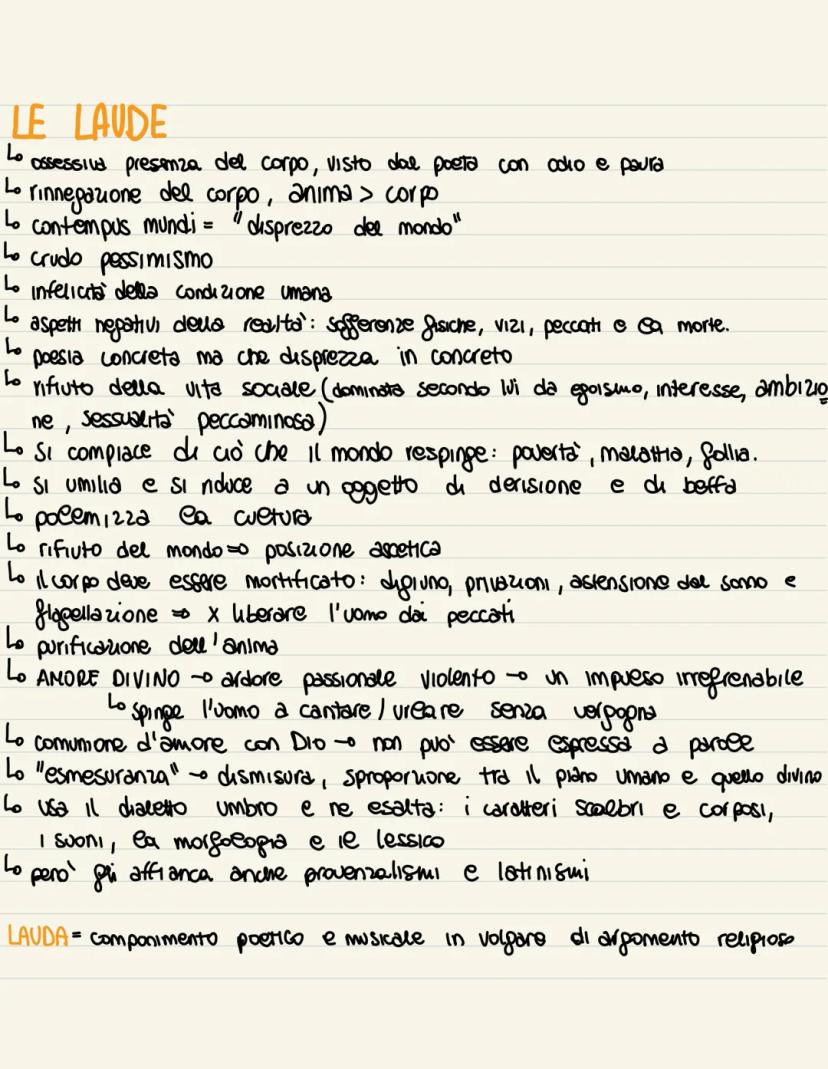 LE LAUDE
↳ ossessiva presenza del corpo, visto dal poeta con odio e paura
↳ rinnegazione del corpo, anima > corpo
↳ contempus mundi = "disprezzo del mondo"
↳ crudo pessimismo
↳ infelicità della condizione umana
↳ aspetti negativi della realtà: sofferenze fisiche, vizi, peccati e la morte.
↳ poesia concreta ma che disprezza in concreto
↳ rifiuto della vita sociale (dominata secondo lui da egoismo, interesse, ambizio
ne, sessualità peccaminosa)
↳ Si compiace di ciò che il mondo respinge: povertà, malattia, follia.
↳ Si umilia e si riduce a un oggetto di derisione e di beffa
↳ polemizza la cultura
↳ rifiuto del mondo ⇒ posizione ascetica
↳ il corpo deve essere mortificato: digiuno, privazioni, astensione dal sonno e
flagellazione ⇒ x liberare l'uomo dai peccati
↳ purificazione dell'anima
↳ AMORE DIVINO → ardore passionale violento → un impulso irrefrenabile
↳ spinge l'uomo a cantare / urlare senza vergogna
↳ comunione d'amore con Dio → non può essere espressa a parole
↳ "esmesuranza" → dismisura, sproporzione tra il piano umano e quello divino
↳ usa il dialetto umbro e ne esalta: i caratteri scabri e corposi,
i suoni, la morfologia e il lessico
↳ però gli affianca anche provenzalismi e latinismi
LAUDA = componimento poetico e musicale in volgare di argomento religioso